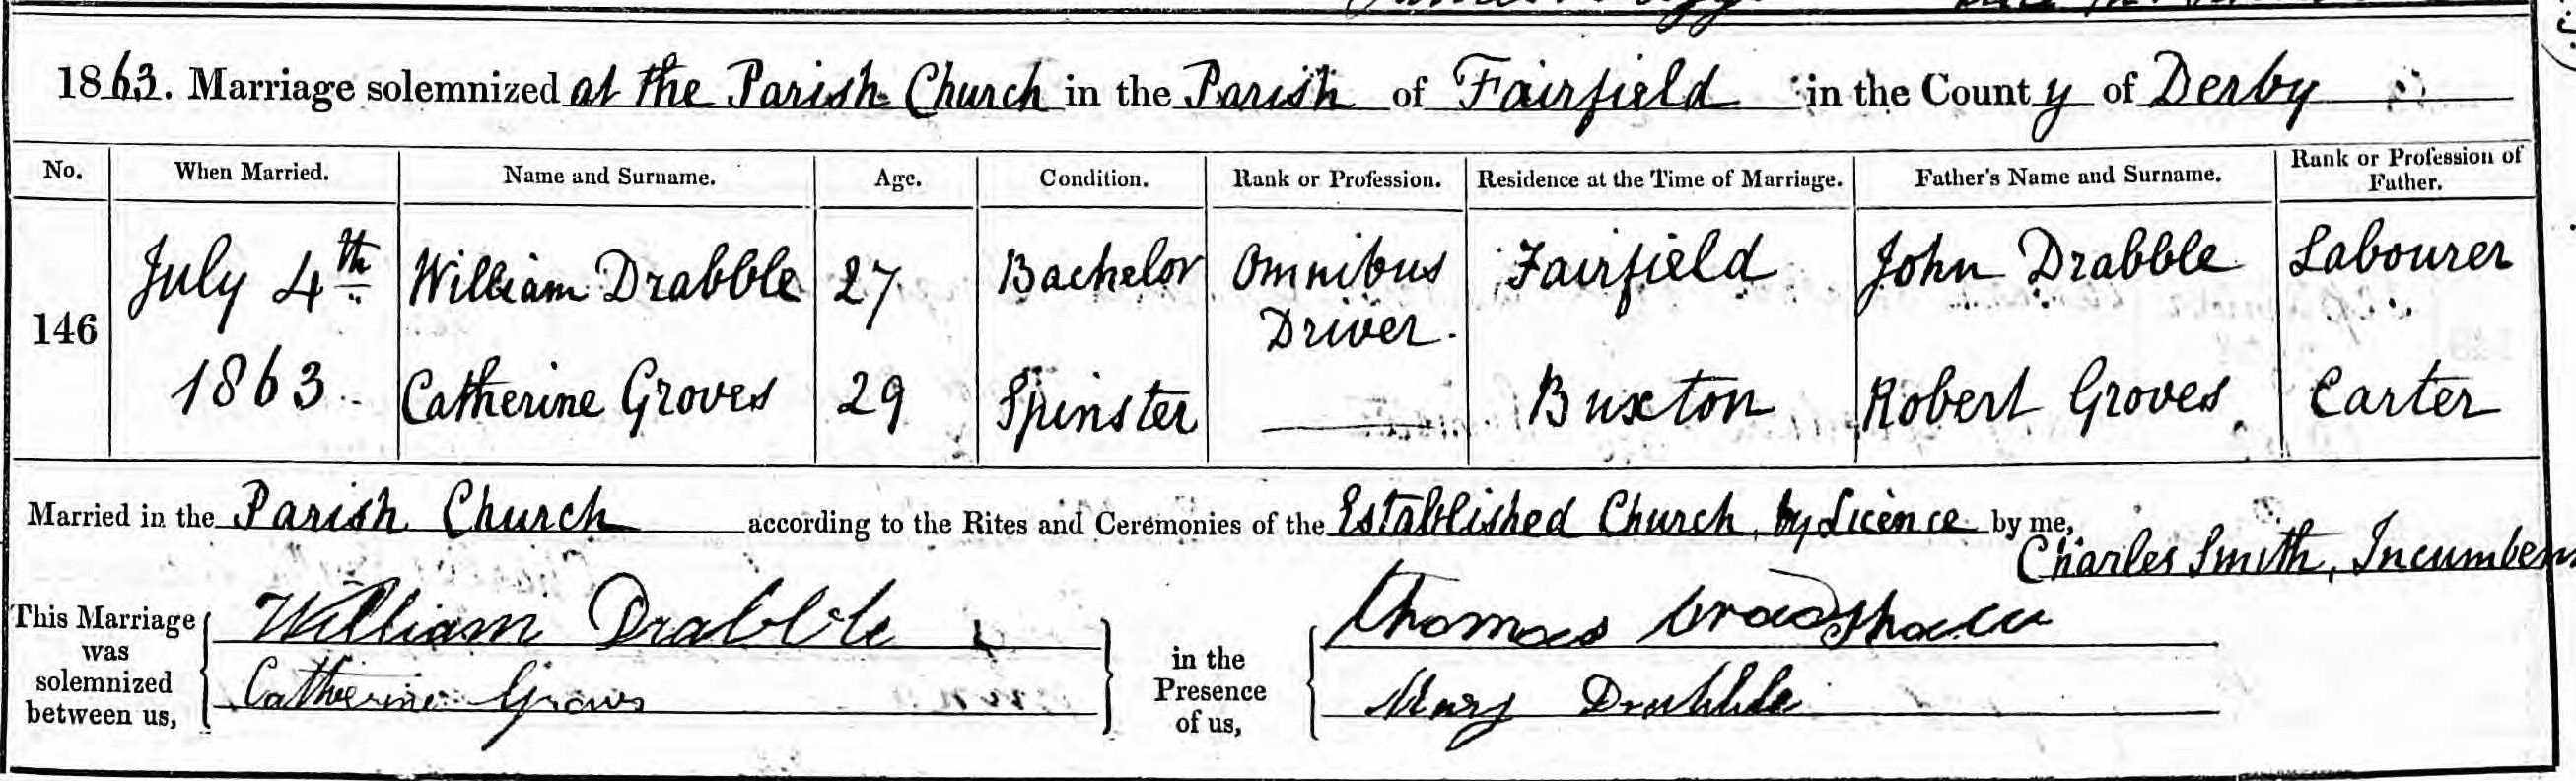 1863. Marriage solemnized at the Parish Church in the Parish of Fairfield in the County of Derby
No. When Married. Name and Surname. Age. Condition. Rank or Profession. Residence at the Time of Marriage. Father's Name and Surname. Rank or Profession of Father.
146
July 4th William Drabble 27 Bachelor Omnibus Driver. Fairfield John Drabble Labourer
1863. Catherine Groves 29 Spinster Buxton Robert Groves Carter
Married in the Parish Church according to the Rites and Ceremonies of the Established Church, by Licence by me,
Charles Smith, Incumben
This Marriage was solemnized between us,
William Drabble
Catherine Groves
in the Presence of us,
Thomas Bradshaw
Mary Drabble